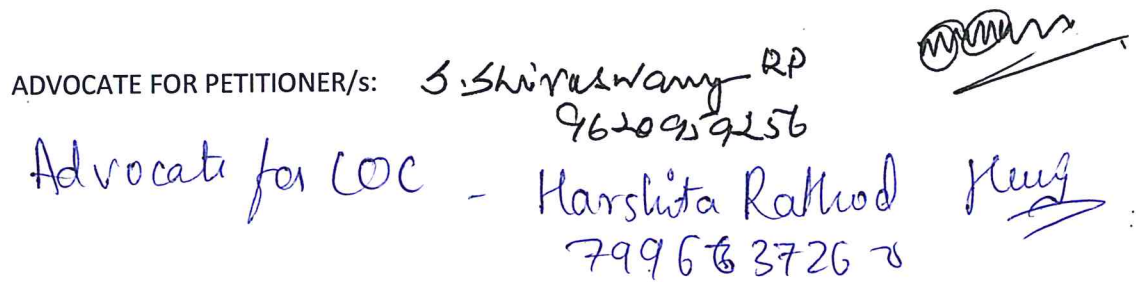 ADVOCATE FOR PETITIONER/s: S. Shivaswamy RP
9620959256
Advocate for COC - Harshita Rathod
7996637260